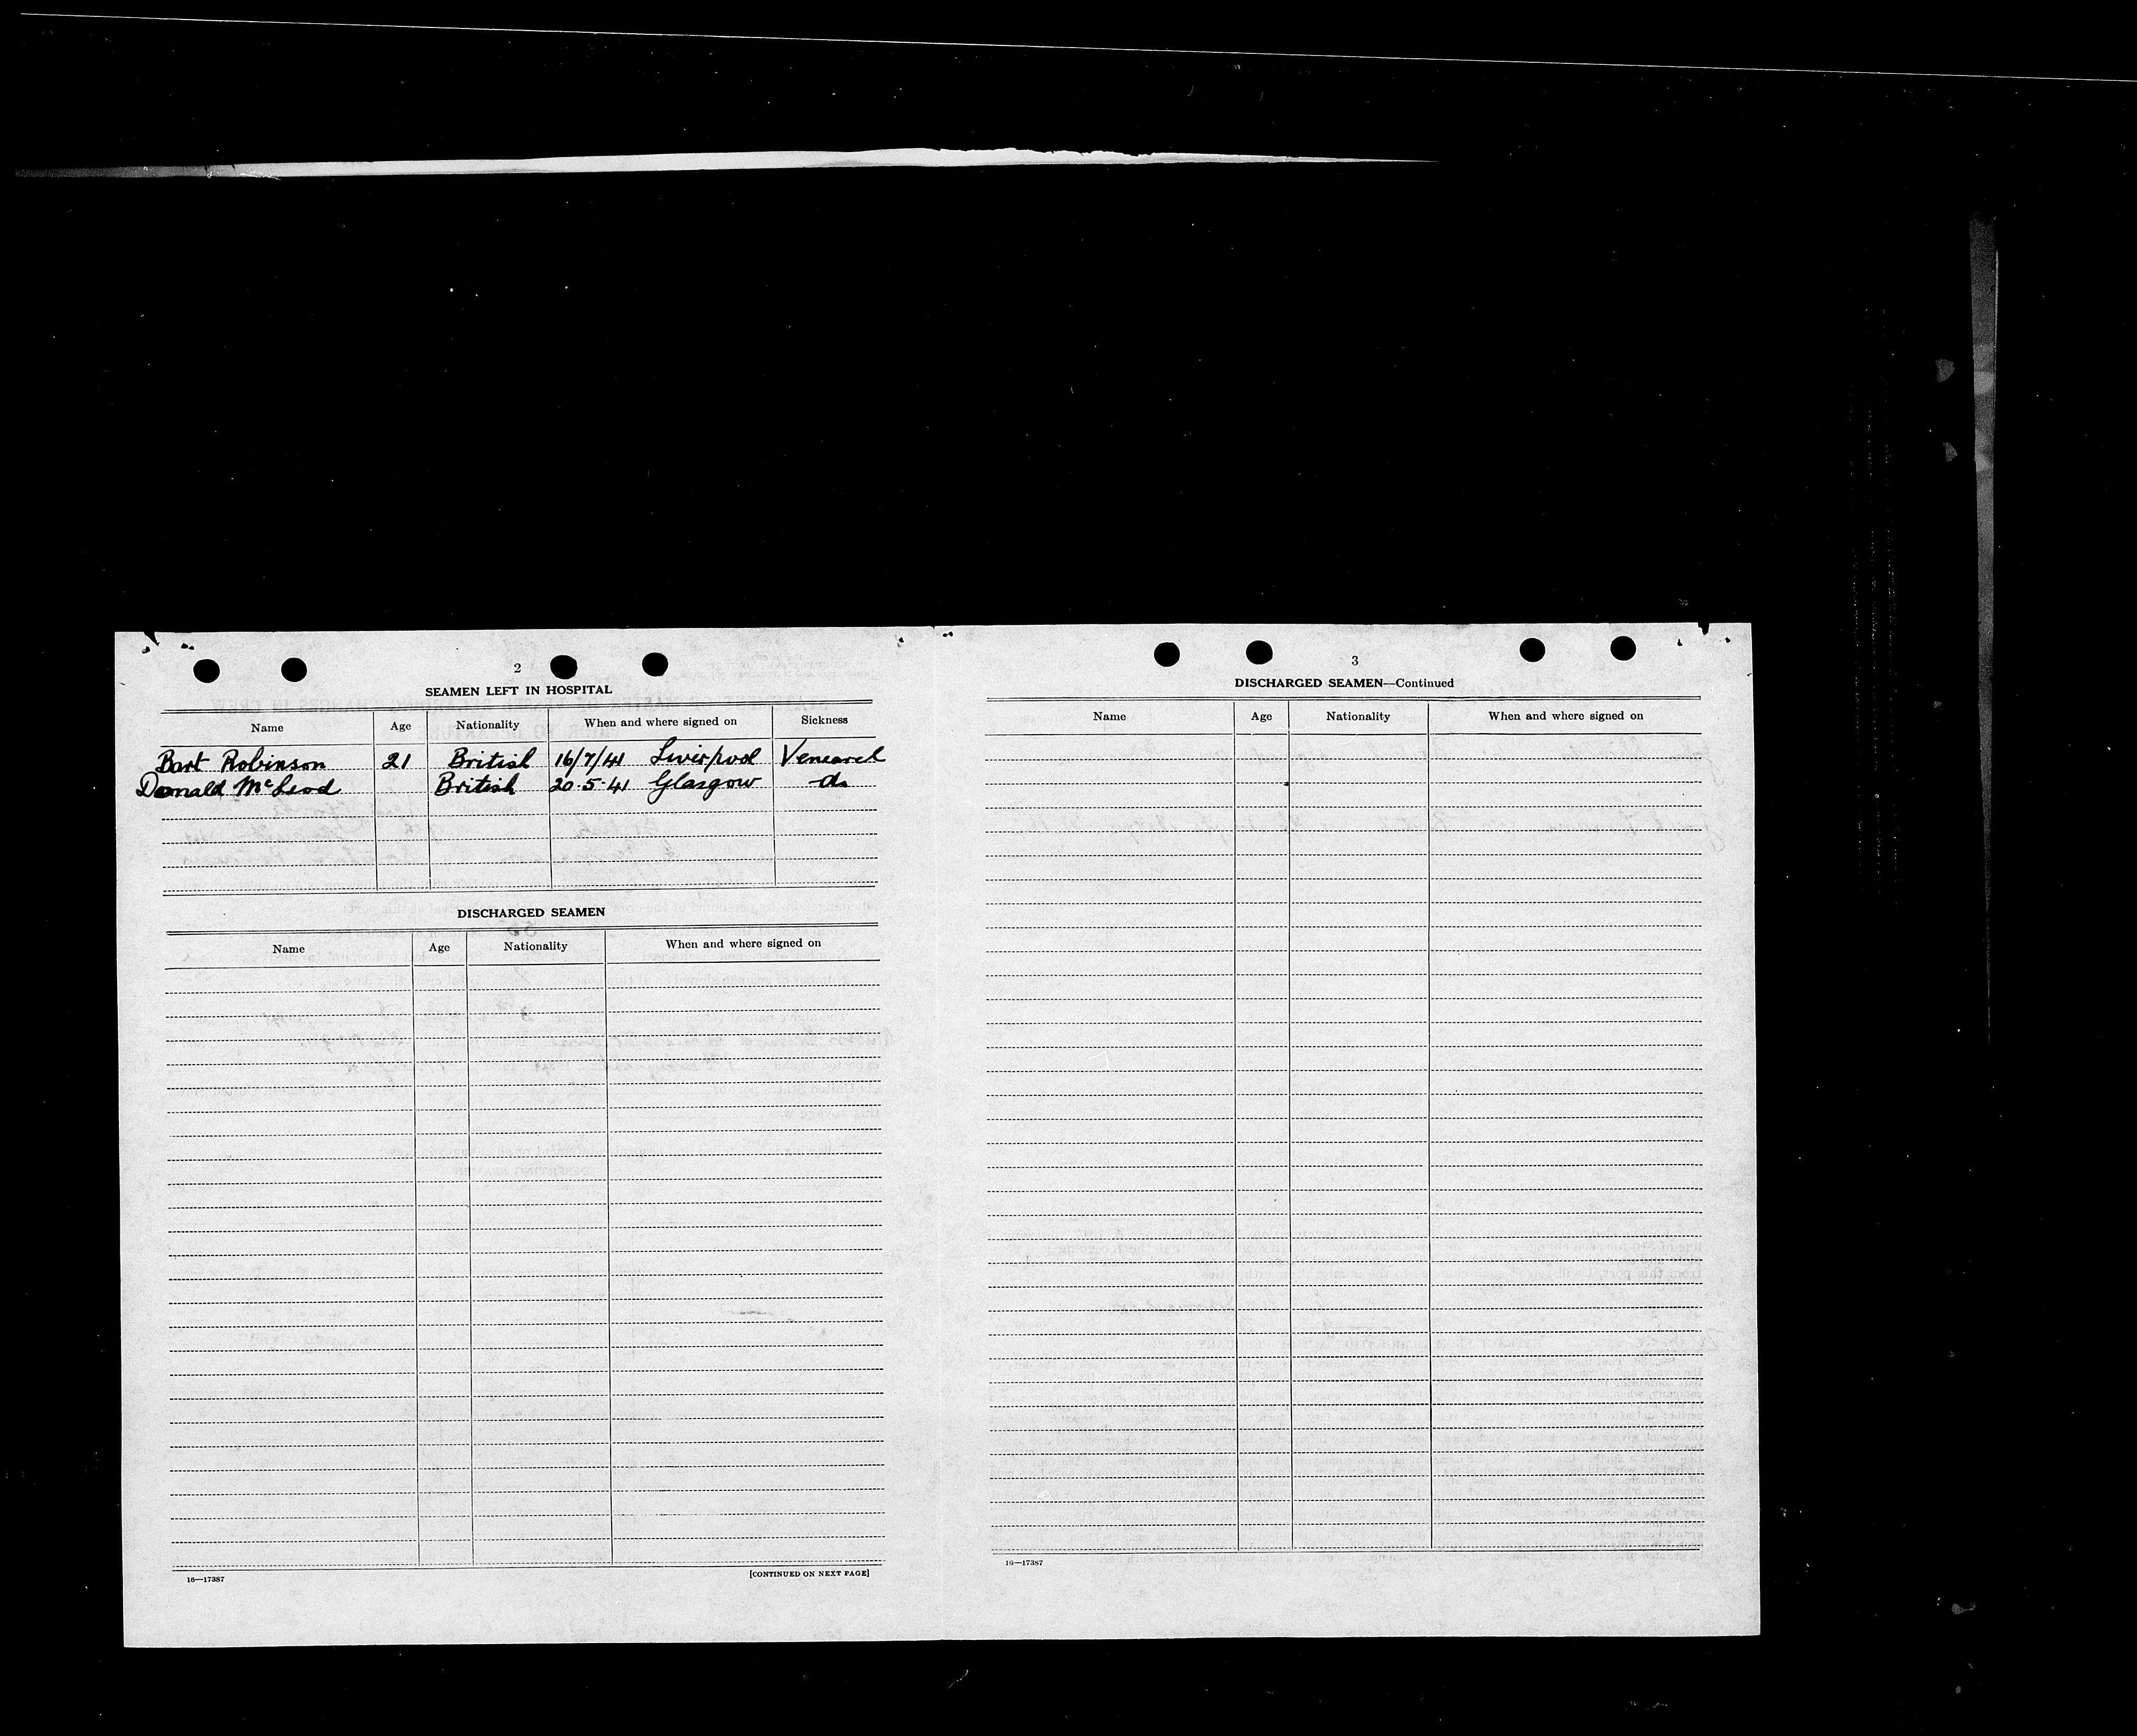 2
SEAMEN LEFT IN HOSPITAL
Name Age Nationality When and where signed on Sickness
Bart Robinson 21 British 16/7/41 Liverpool Venearel
Donald McLeod British 20.5.41 Glasgow -do
DISCHARGED SEAMEN
Name Age Nationality When and where signed on
16—17387 [CONTINUED ON NEXT PAGE]
3
DISCHARGED SEAMEN—Continued
Name Age Nationality When and where signed on
16—17387